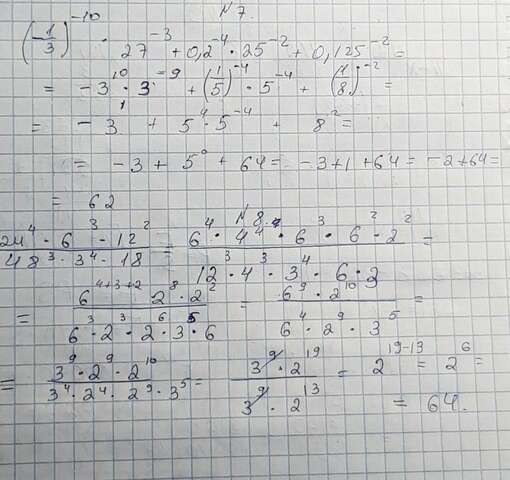 N7.
(-1/3)^-10 · 27^-3 + 0,2^-4 · 25^-2 + 0,125^-2 =
= -3^10 · 3^-9 + (1/5)^-4 · 5^-4 + (1/8)^-2 =
= -3^1 + 5^4 · 5^-4 + 8^2 =
= -3 + 5^0 + 64 = -3 + 1 + 64 = -2 + 64 =
= 62
N8.
24^4 · 6^3 · 12^2 / 48^3 · 3^4 · 18 = 6^4 · 4^4 · 6^3 · 6^2 · 2^2 / 12^3 · 4^3 · 3^4 · 6 · 3 =
= 6^4+3+2 2^8 · 2^2 / 6^3 · 2^3 · 2^6 · 3^5 · 6 = 6^9 · 2^10 / 6^4 · 2^9 · 3^5 =
= 3^9 · 2^9 · 2^10 / 3^4 · 2^4 · 2^9 · 3^5 = 3^9 · 2^19 / 3^9 · 2^13 = 2^19-13 = 2^6 =
= 64.